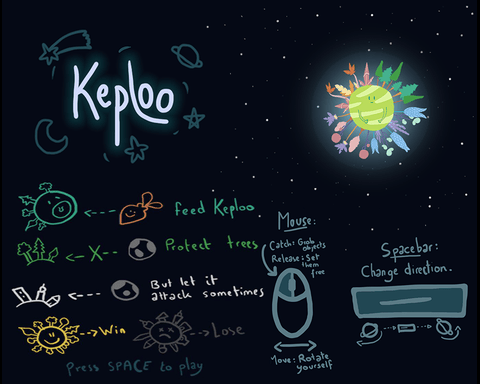 Keploo
feed Keploo.
X
Protect trees
But let it
attack sometimes
Win
Lose
Press SPACE to play
Mouse:
Catch: Grab
objects
Release: Set
them
free
Move: Rotate
yourself
Spacebar:
Change direction.